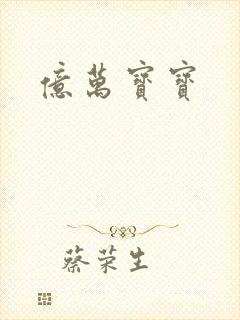 億萬寶寶
蔡荣生